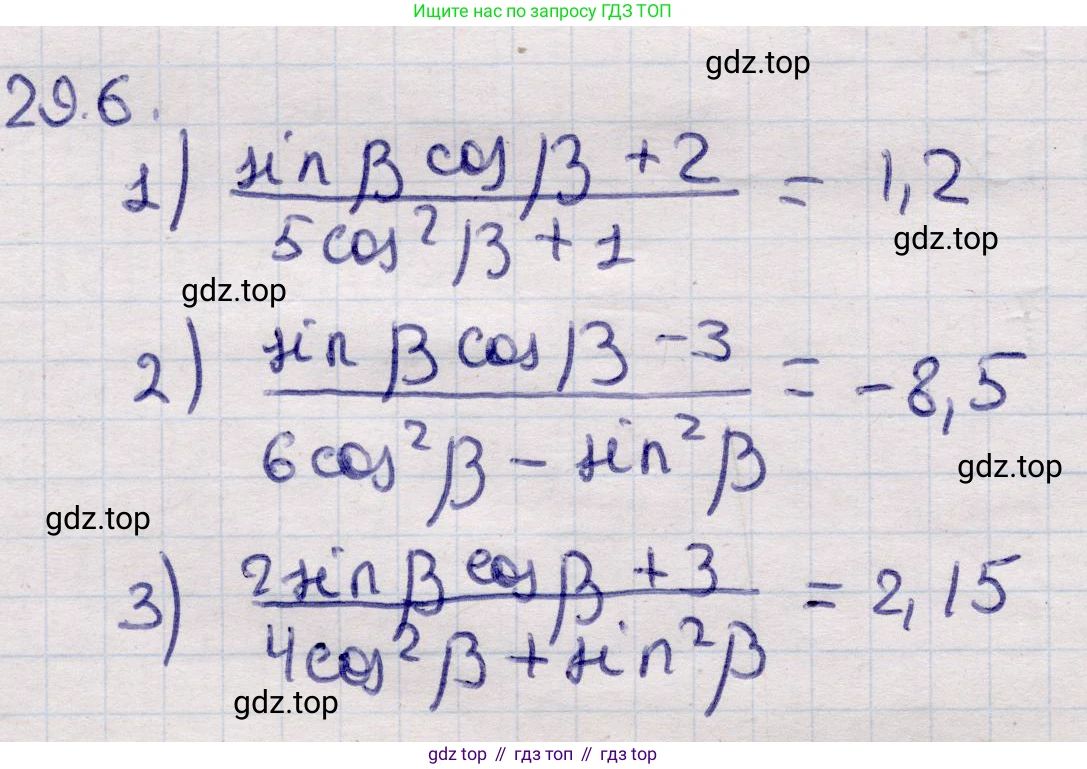 Ищите нас по запросу ГДЗ ТОП
gdz.top
29.6.
1) (sin β cos β + 2) / (5cos²β + 1) = 1,2
gdz.top
gdz.top
2) (sin β cos β - 3) / (6cos²β - sin²β) = -8,5
gdz.top
gdz.top
3) (2sin β cos β + 3) / (4cos²β + sin²β) = 2,15
gdz.top
gdz top // гдз топ // gdz top